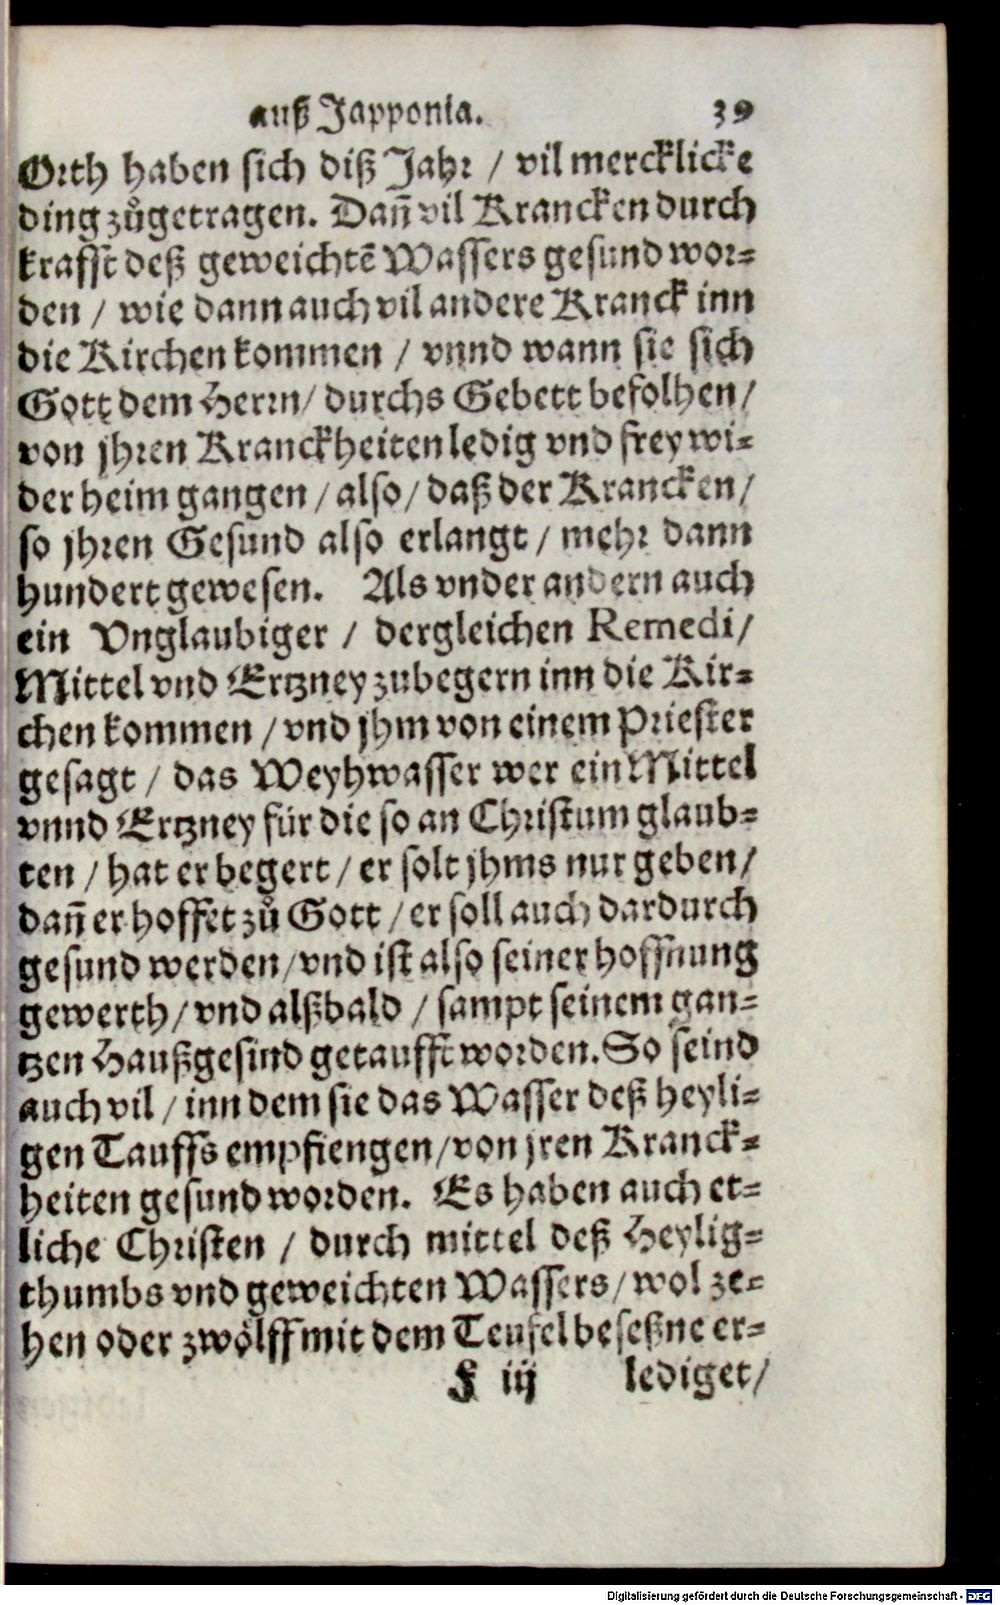 auß Japponia. 39
Orth haben sich diß Jahr / vil mercklicke
ding zůgetragen. Dañ vil Krancken durch
krafft deß geweichtē Wassers gesund wor⸗
den / wie dann auch vil andere Kranck inn
die Kirchen kommen / vnnd wann sie sich
Gott dem Herrn / durchs Gebett befolhen /
von jhren Kranckheiten ledig vnd frey wi⸗
der heim gangen / also / daß der Krancken /
so jhren Gesund also erlangt / mehr dann
hundert gewesen. Als vnder andern auch
ein Vnglaubiger / dergleichen Remedi /
Mittel vnd Ertzney zubegern inn die Kir⸗
chen kommen / vnd jhm von einem Priester
gesagt / das Weyhwasser wer ein Mittel
vnnd Ertzney für die so an Christum glaub⸗
ten / hat er begert / er solt jhms nur geben /
dañ er hoffet zů Gott / er soll auch dardurch
gesund werden / vnd ist also seiner hoffnung
gewerth / vnd alßbald / sampt seinem gan⸗
tzen Haußgesind getaufft worden. So seind
auch vil / inn dem sie das Wasser deß heyli⸗
gen Tauffs empfiengen / von jren Kranck⸗
heiten gesund worden. Es haben auch et⸗
liche Christen / durch mittel deß Heylig⸗
thumbs vnd geweichten Wassers / wol ze⸗
hen oder zwölff mit dem Teufel beseßne er⸗
F iij lediget /
Digitalisierung gefördert durch die Deutsche Forschungsgemeinschaft - DFG